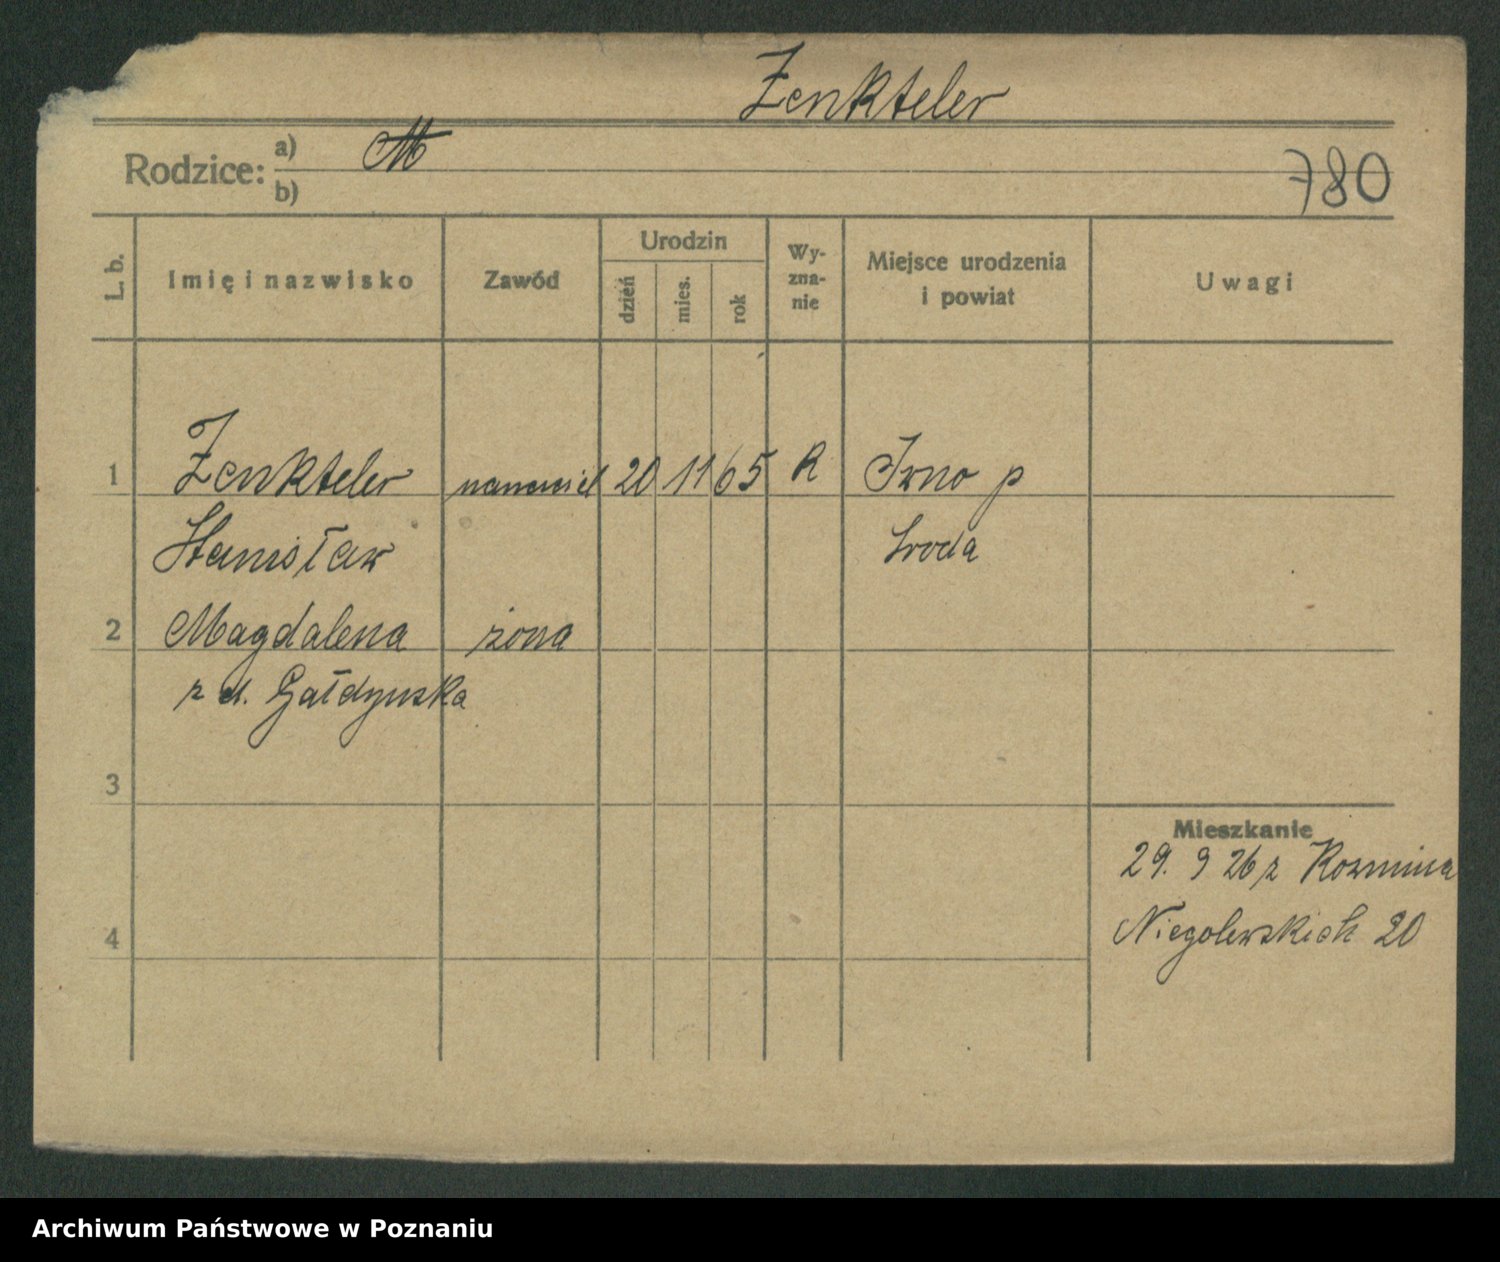 Zenkteler
Rodzice: a) M
b)
780
L. b.
Imię i nazwisko
Zawód
Urodzin
dzień
mies.
rok
Wy-
zna-
nie
Miejsce urodzenia
i powiat
Uwagi
1 Zenkteler nauczyciel 20 11 65 R Iwno p
Stanisław Sroda
2 Magdalena żona
z d. Gałdynska
3
Mieszkanie
29. 9 26 z Kozmina
4 Niegolewskich 20
Archiwum Państwowe w Poznaniu